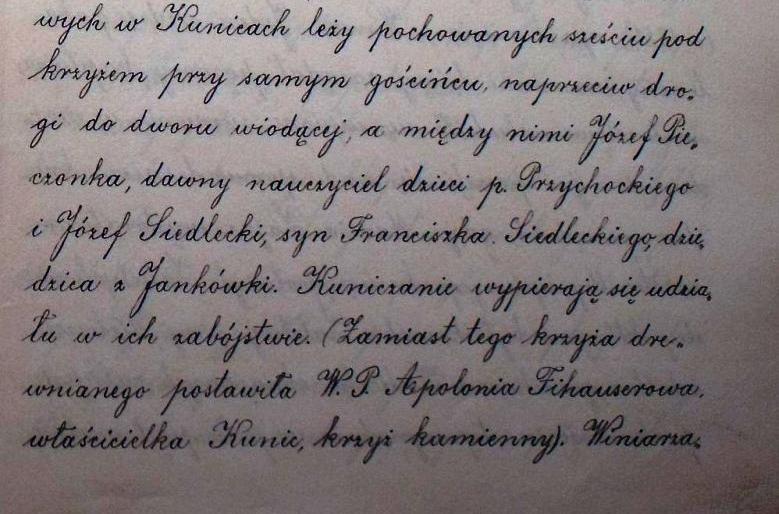 wych w Kunicach leży pochowanych sześciu pod
krzyżem przy samym gościńcu, naprzeciw dro„
gi do dworu wiodącej, a między nimi Józef Pie„
czonka, dawny nauczyciel dzieci p. Przychockiego
i Józef Siedlecki, syn Franciszka. Siedleckiego, dzie„
dzica z Jankówki. Kuniczanie wypierają się udzia„
łu w ich zabójstwie. (Zamiast tego krzyża dre„
wnianego postawiła W. P. Apolonia Fihauserowa,
właścicielka Kunic, krzyż kamienny). Winiarza„